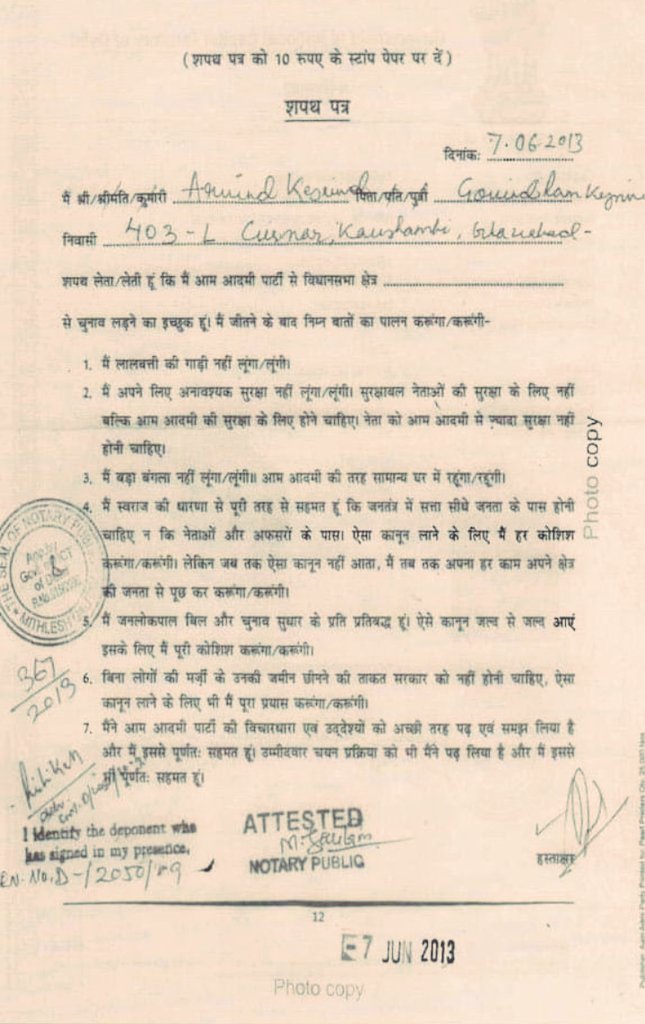 (शपथ पत्र को 10 रूपए के स्टांप पेपर पर दें)
शपथ पत्र
दिनांक: 7.06.2013
मैं श्री/श्रीमति/कुमारी Arvind Kejriwal पिता/पति/पुत्री Govind Ram
निवासी 403-L Kaushambi, Ghaziabad-
शपथ लेता/लेती हूं कि मैं आम आदमी पार्टी से विधानसभा क्षेत्र
से चुनाव लड़ने का इच्छुक हूं। मैं जीतने के बाद निम्न बातों का पालन करूंगा/करूंगी-
1. मैं लालबत्ती की गाड़ी नहीं लूंगा/लूंगी।
2. मैं अपने लिए अनावश्यक सुरक्षा नहीं लूंगा/लूंगी। सुरक्षाबल नेताओं की सुरक्षा के लिए नहीं
बल्कि आम आदमी की सुरक्षा के लिए होने चाहिए। नेता को आम आदमी से ज्यादा सुरक्षा नहीं
होनी चाहिए।
3. मैं बड़ा बंगला नहीं लूंगा/लूंगी॥ आम आदमी की तरह सामान्य घर में रहूंगा/रहूंगी।
4. मैं स्वराज की धारणा से पूरी तरह से सहमत हूं कि जनतंत्र में सत्ता सीधे जनता के पास होनी
चाहिए न कि नेताओं और अफसरों के पास। ऐसा कानून लाने के लिए मैं हर कोशिश
करूंगा/करूंगी। लेकिन जब तक ऐसा कानून नहीं आता, मैं तब तक अपना हर काम अपने क्षेत्र
की जनता से पूछ कर करूंगा/करूंगी।
5. मैं जनलोकपाल बिल और चुनाव सुधार के प्रति प्रतिबद्ध हूं। ऐसे कानून जल्द से जल्द आएं
इसके लिए मैं पूरी कोशिश करूंगा/करूंगी।
6. बिना लोगों की मर्ज़ी के उनकी जमीन छीनने की ताकत सरकार को नहीं होनी चाहिए, ऐसा
कानून लाने के लिए भी मैं पूरा प्रयास करूंगा/करूंगी।
7. मैंने आम आदमी पार्टी की विचारधारा एवं उद्देश्यों को अच्छी तरह पढ़ एवं समझ लिया है
और मैं इससे पूर्णतः सहमत हूं। उम्मीदवार चयन प्रक्रिया को भी मैंने पढ़ लिया है और मैं इससे
भी पूर्णतः सहमत हूं।
Photo copy
THE SEAL OF NOTARY PUBLIC
MITHLESH
367/2013
I identify the deponent who
has signed in my presence,
EN. No. D-/2050/09
ATTESTED
NOTARY PUBLIC
हस्ताक्षर
12
-7 JUN 2013
Photo copy